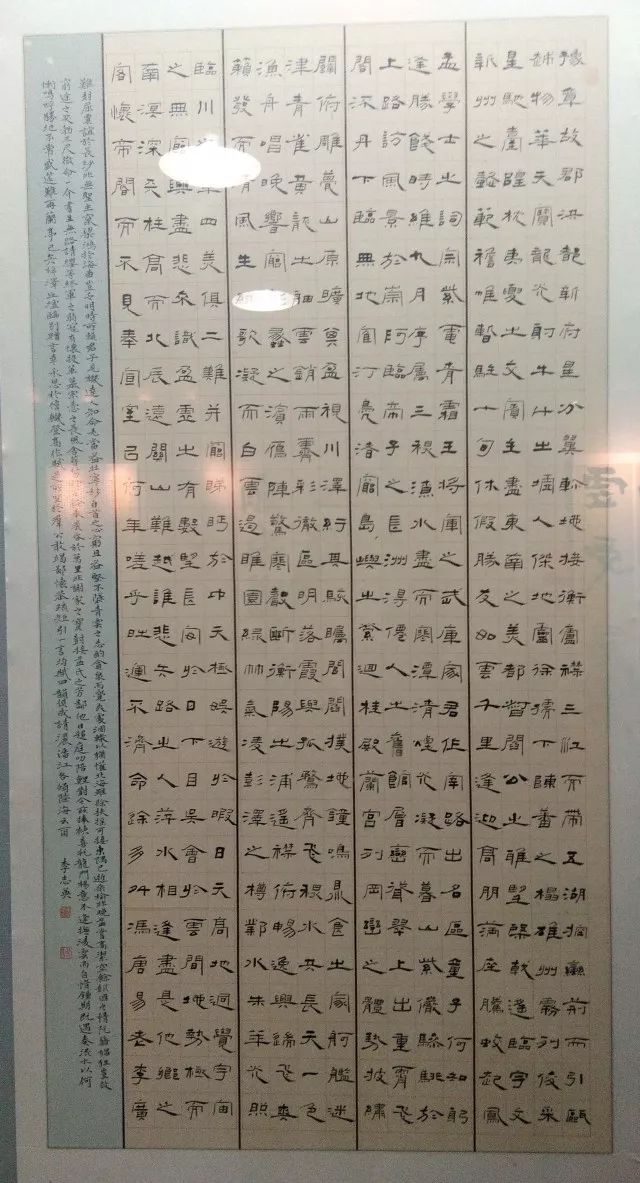 豫章故郡洪都新府星分翼軫地接衡廬襟三江而帶五湖控蠻荊而引甌
越物華天寶龍光射牛斗之墟人傑地靈徐孺下陳蕃之榻雄州霧列俊采
星馳臺隍枕夷夏之交賓主盡東南之美都督閻公之雅望棨戟遙臨宇文
新州之懿範襜帷暫駐十旬休假勝友如雲千里逢迎高朋滿座騰蛟起鳳
孟學士之詞宗紫電青霜王將軍之武庫家君作宰路出名區童子何知躬
逢勝餞時維九月序屬三秋潦水盡而寒潭清煙光凝而暮山紫儼驂騑於
上路訪風景於崇阿臨帝子之長洲得僊人之舊館層巒聳翠上出重霄飛
閣流丹下臨無地汀鳧渚窮島嶼之縈迴桂殿蘭宮列岡巒之體勢披繡
闥俯雕甍山原曠其盈視川澤紆其駭矚閭閻撲地鐘鳴鼎食之家舸艦迷
津青雀黃龍之舳雲銷雨霽彩徹區明落霞與孤鶩齊飛秋水共長天一色
漁舟唱晚響窮彭蠡之濱雁陣驚寒聲斷衡陽之浦遙襟俯暢逸興遄飛爽
籟發而清風生歌凝而白雲遏睢園綠竹氣凌彭澤之樽鄴水朱華光照
臨川之四美俱二難并窮睇眄於中天極娛遊於暇日天高地迥覺宇宙
之無窮興盡悲來識盈虛之有數望長安於日下目吳會於雲間地勢極而
南溟深天柱高而北辰遠關山難越誰悲失路之人萍水相逢盡是他鄉之
客懷帝閽而不見奉宣室以何年嗟乎時運不濟命途多舛馮唐易老李廣
難封屈賈誼於長沙非無聖主竄梁鴻於海曲豈乏明時所賴君子見機達人知命老當益壯寧移白首之心窮且益堅不墜青雲之志酌貪泉而覺爽處涸轍以猶懽北海雖賒扶搖可接東隅已逝桑榆非晚孟嘗高潔空餘報國之情阮籍猖狂豈效
窮途之哭勃三尺微命一介書生無路請纓等終軍之弱冠有懷投筆慕宗愨之長風舍簪笏於百齡奉晨昏於萬里非謝家之寶樹接孟氏之芳鄰他日趨庭叨陪鯉對今茲捧袂喜托龍門楊意不逢撫凌雲而自惜鍾期既遇奏流水以何
慚嗚呼勝地不常盛筵難再蘭亭已矣梓澤丘墟臨別贈言幸承恩於偉餞登高作賦是所望於羣公敢竭鄙懷恭疏短引一言均賦四韻俱成請灑潘江各傾陸海云爾 李志英